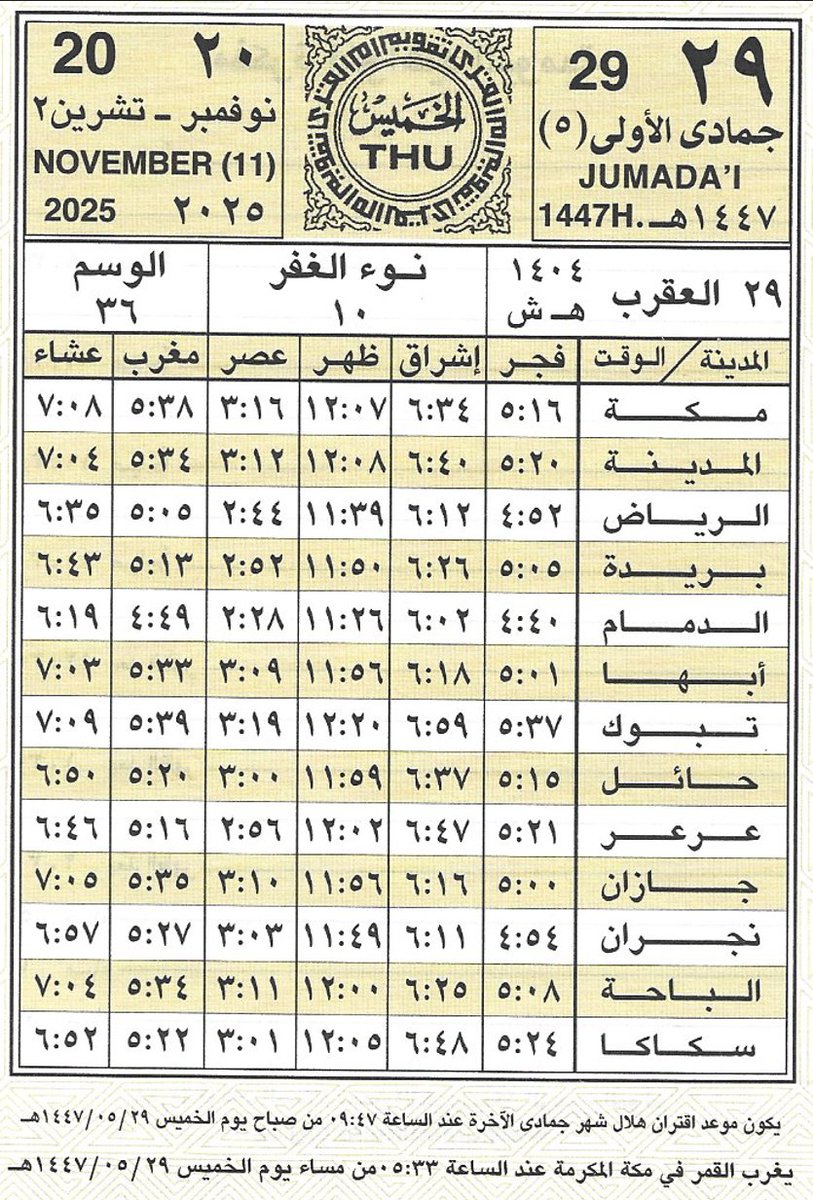 ٢٩ 29
جمادى الأولى (٥)
JUMADA'I
1447H. ١٤٤٧هـ
تقويم أم القرى
الخميس
THU
20 ٢٠
نوفمبر - تشرين٢
NOVEMBER (11)
2025 ٢٠٢٥
٢٩ العقرب ١٤٠٤ هـ ش
نوء الغفر ١٠
الوسم ٣٦
المدينة / الوقت فجر إشراق ظهر عصر مغرب عشاء
مكة ٥:١٦ ٦:٣٤ ١٢:٠٧ ٣:١٦ ٥:٣٨ ٧:٠٨
المدينة ٥:٢٠ ٦:٤٠ ١٢:٠٨ ٣:١٢ ٥:٣٤ ٧:٠٤
الرياض ٤:٥٢ ٦:١٢ ١١:٣٩ ٢:٤٤ ٥:٠٥ ٦:٣٥
بريدة ٥:٠٥ ٦:٢٦ ١١:٥٠ ٢:٥٢ ٥:١٣ ٦:٤٣
الدمام ٤:٤٠ ٦:٠٢ ١١:٢٦ ٢:٢٨ ٤:٤٩ ٦:١٩
أبها ٥:٠١ ٦:١٨ ١١:٥٦ ٣:٠٩ ٥:٣٣ ٧:٠٣
تبوك ٥:٣٧ ٦:٥٩ ١٢:٢٠ ٣:١٩ ٥:٣٩ ٧:٠٩
حائل ٥:١٥ ٦:٣٧ ١١:٥٩ ٣:٠٠ ٥:٢٠ ٦:٥٠
عرعر ٥:٢١ ٦:٤٧ ١٢:٠٢ ٢:٥٦ ٥:١٦ ٦:٤٦
جازان ٥:٠٠ ٦:١٦ ١١:٥٦ ٣:١٠ ٥:٣٥ ٧:٠٥
نجران ٤:٥٤ ٦:١١ ١١:٤٩ ٣:٠٣ ٥:٢٧ ٦:٥٧
الباحة ٥:٠٨ ٦:٢٥ ١٢:٠٠ ٣:١١ ٥:٣٤ ٧:٠٤
سكاكا ٥:٢٤ ٦:٤٨ ١٢:٠٥ ٣:٠١ ٥:٢٢ ٦:٥٢
يكون موعد اقتران هلال شهر جمادى الآخرة عند الساعة ٠٩:٤٧ من صباح يوم الخميس ١٤٤٧/٠٥/٢٩هـ
يغرب القمر في مكة المكرمة عند الساعة ٠٥:٣٣من مساء يوم الخميس ١٤٤٧/٠٥/٢٩هـ